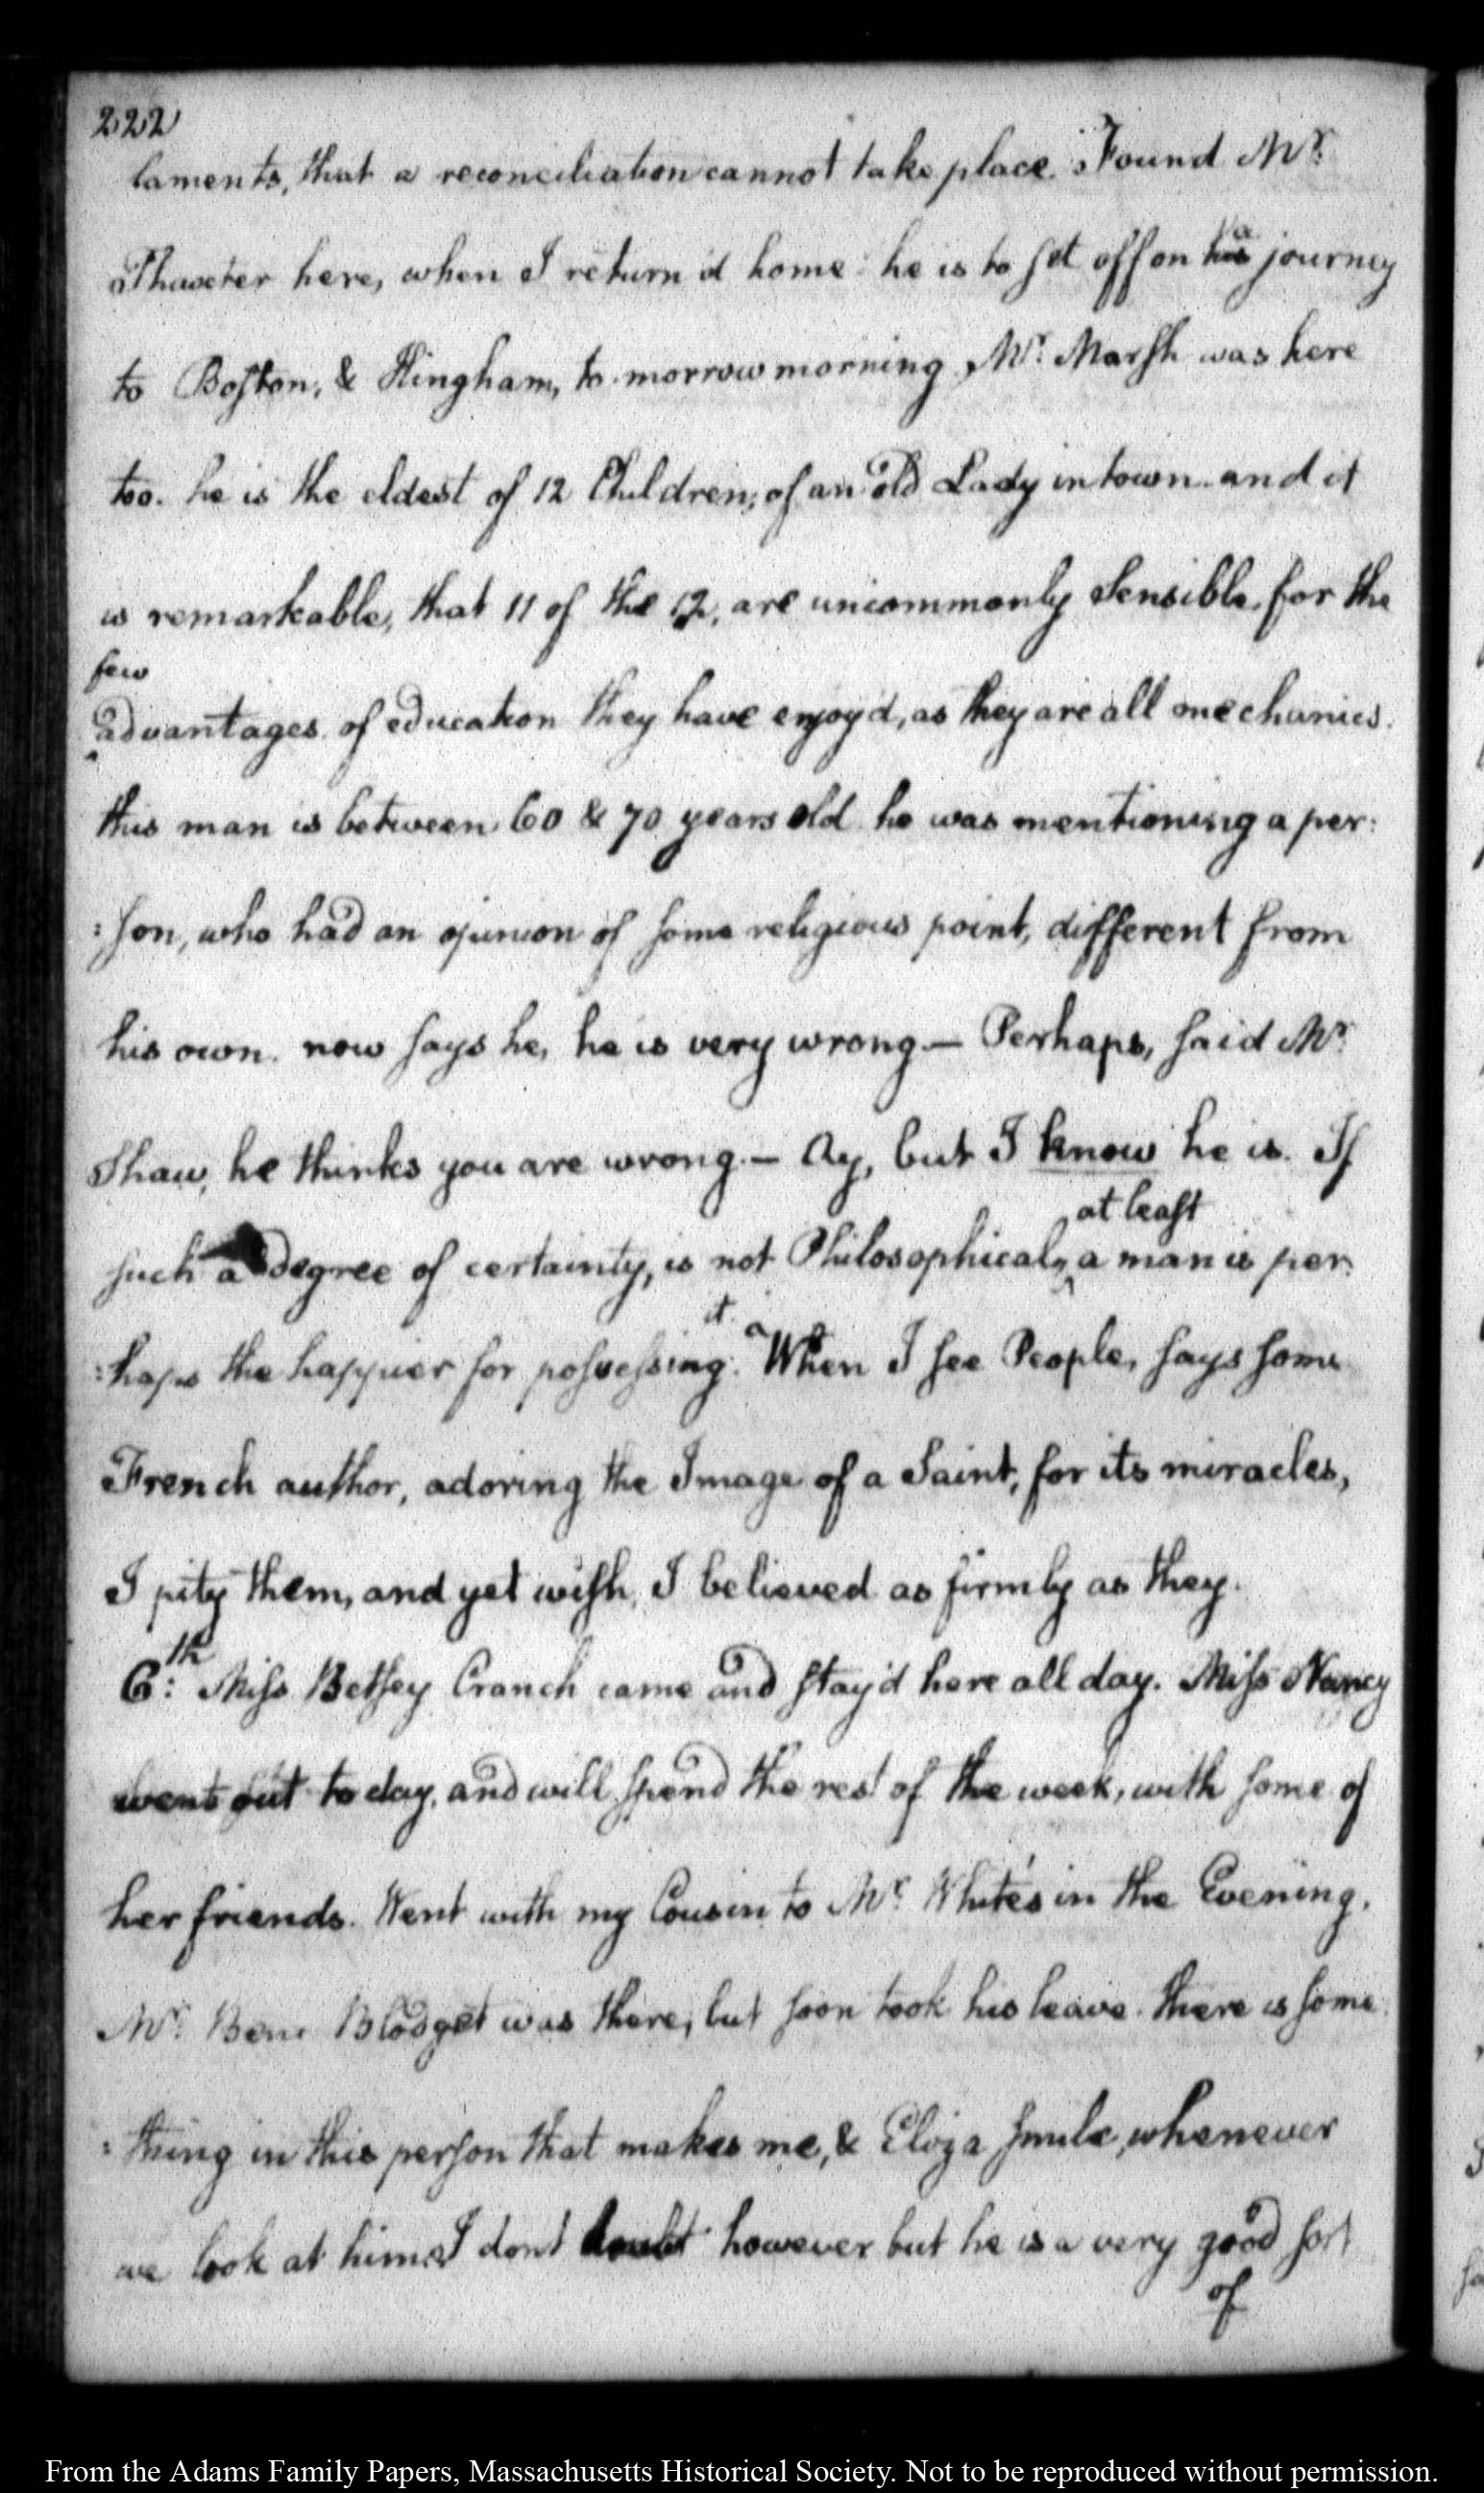 222
laments, that a reconciliation cannot take place. Found Mr.
Thaxter here, when I return'd home: he is to set off on his a journey
to Boston, & Hingham, to-morrow morning. Mr. Marsh was here
too. he is the eldest of 12 Children, of an old Lady in town. and it
is remarkable, that 11 of the 12, are uncommonly Sensible, for the
few
advantages of education they have enjoy'd, as they are all mechanics.
this man is between 60 & 70 years old. he was mentioning a per:
:son, who had an opinion of some religious point, different from
his own. now says he, he is very wrong — Perhaps, said Mr.
Shaw, he thinks you are wrong. — Ay, but I know he is. If
at least
such a degree of certainty, is not Philosophical, a man is per:
it
:haps the happier for possessing. When I see People, says some
French author, adoring the Image of a Saint, for its miracles,
I pity them, and yet wish, I believed as firmly as they.
6:th Miss Betsey Cranch came and stay'd here all day. Miss Nancy
went out to day, and will spend the rest of the week, with some of
her friends. Went with my Cousin to Mr. White's in the Evening.
Mr. Blodget was there, but soon took his leave. there is some
:thing in this person that makes me, & Eliza smile, whenever
we look at him. I dont doubt however but he is a very good sort
of
From the Adams Family Papers, Massachusetts Historical Society. Not to be reproduced without permission.